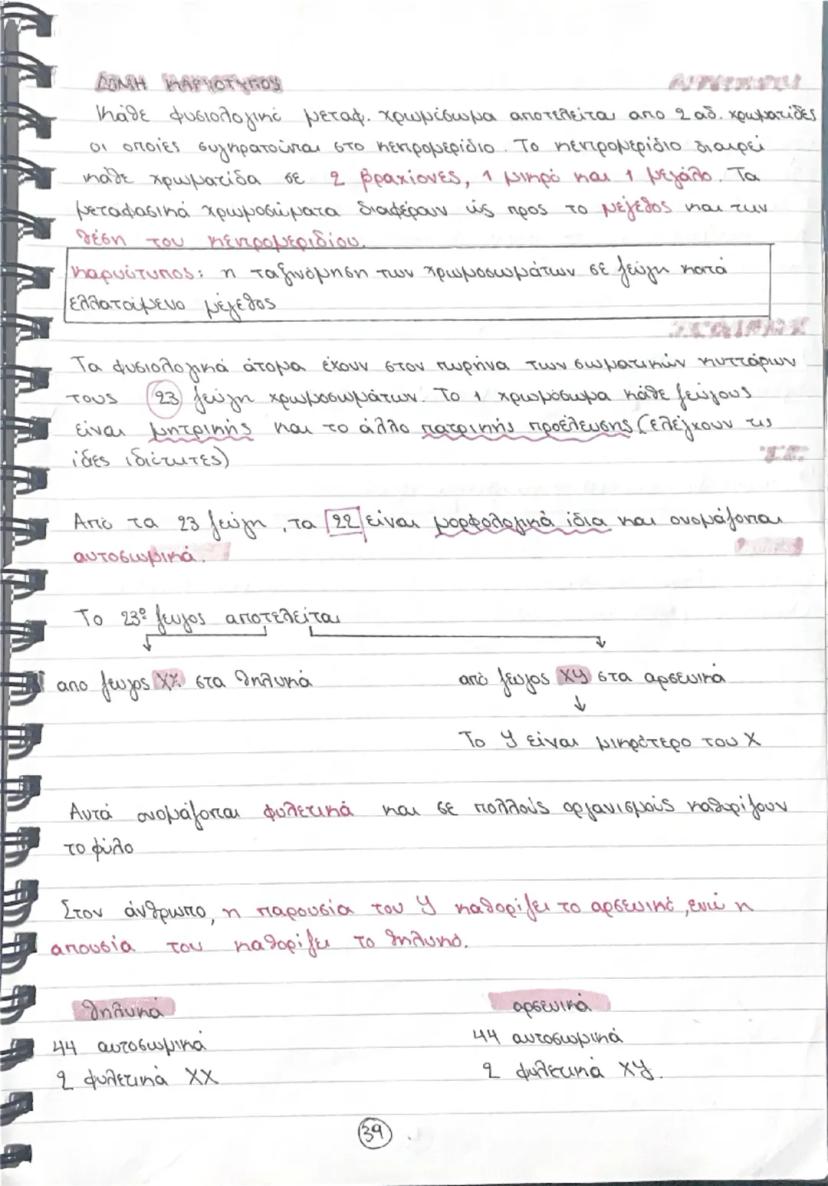 ΔΟΜΗ ΚΑΡΥΟΤΥΠΟΥ
Κάθε φυσιολογικό μεταφ. χρωμόσωμα αποτελείται απο 2 αδ. χρωματίδες
οι οποίες συγκρατούνται στο κεντρομερίδιο. Το κεντρομερίδιο διαιρεί
κάθε χρωματίδα σε 2 βραχίονες, 1 μικρό και 1 μεγάλο. Τα
μεταφασικά χρωμοσώματα διαφέρουν ώς προς το μέγεθος και την
θέση του κεντρομεριδίου.
Καρυότυπος: η ταξινόμηση των χρωμοσωμάτων σε ζεύγη κατά
ελλατώμενο μέγεθος
Τα φυσιολογικά άτομα έχουν στον πυρήνα των σωματικών κυττάρων
τους 23 ζεύγη χρωμοσωμάτων. Το 1 χρωμόσωμα κάθε ζεύγους
είναι μητρικής και το άλλο πατρικής προέλευσης (ελέγχουν τις
ίδες ιδιότητες)
Από τα 23 ζεύγη, τα 22 είναι μορφολογικά ίδια και ονομάζονται
αυτοσωμικά.
Το 23ο ζευγος αποτελείται
απο ζευγος ΧΧ στα θηλυκά από ζεύγος ΧΥ στα αρσενικά
Το Υ είναι μικρότερο του Χ
Αυτά ονομάζονται φυλετικά και σε πολλούς οργανισμούς καθορίζουν
το φύλο
Στον άνθρωπο, η παρουσία του Υ καθορίζει το αρσενικό, ενώ η
απουσία του καθορίζει το θηλυκό.
θηλυκά αρσενικά
44 αυτοσωμικά 44 αυτοσωμικά
2 φυλετικά ΧΧ 2 φυλετικά ΧΥ.
39